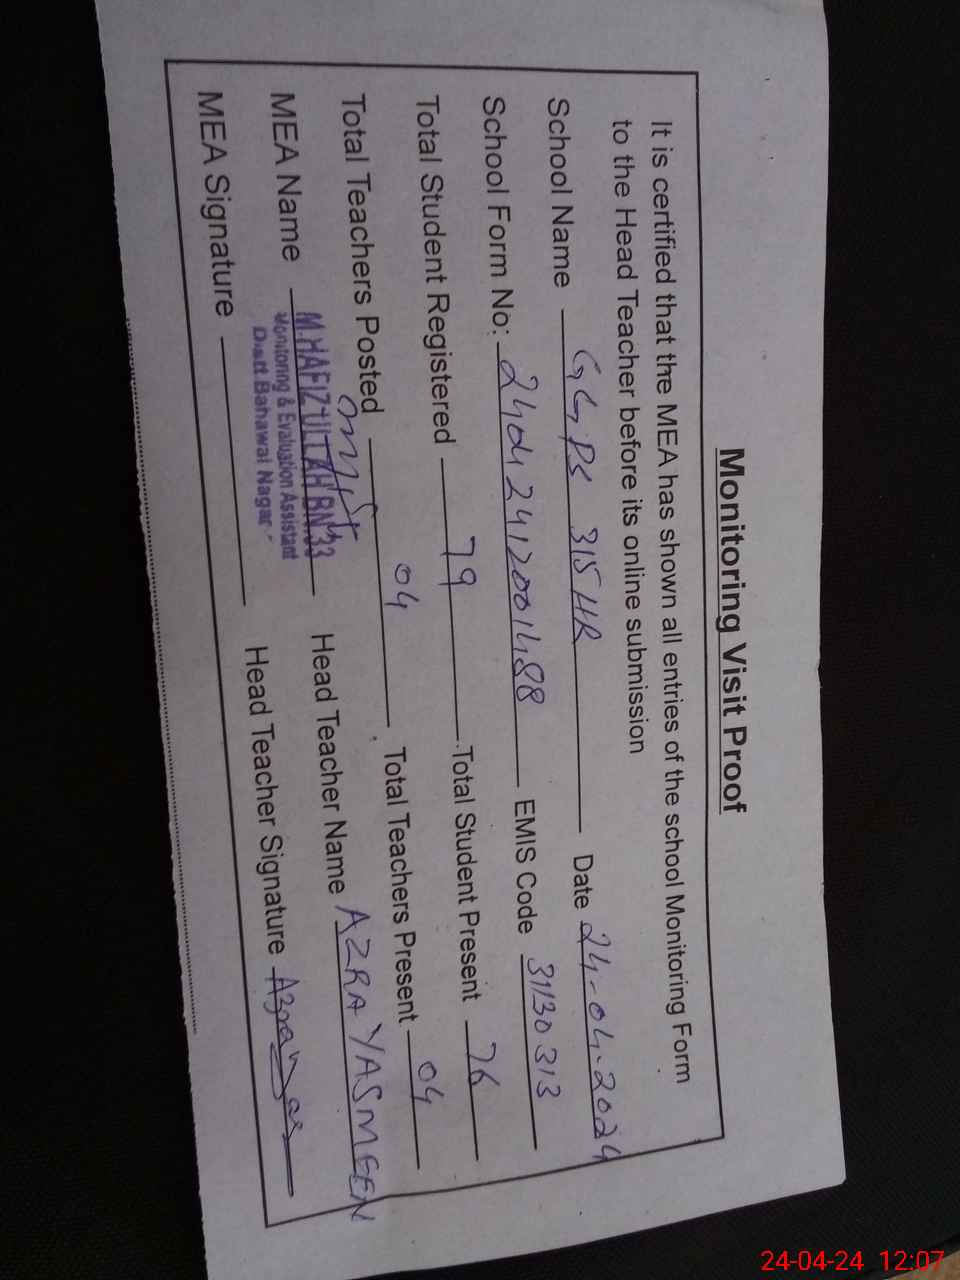 Monitoring Visit Proof
It is certified that the MEA has shown all entries of the school Monitoring Form
to the Head Teacher before its online submission
School Name GGPS 315 HR Date 24-04-2024
School Form No: 24042412001488 EMIS Code 31130313
Total Student Registered 79 Total Student Present 76
Total Teachers Posted 04 Total Teachers Present 04
MEA Name M.HAFIZ ULLAH BN.33 Head Teacher Name AZRA YASMEEN
Monitoring & Evaluation Assistant
Distt Bahawal Nagar
MEA Signature Head Teacher Signature
24-04-24 12:07